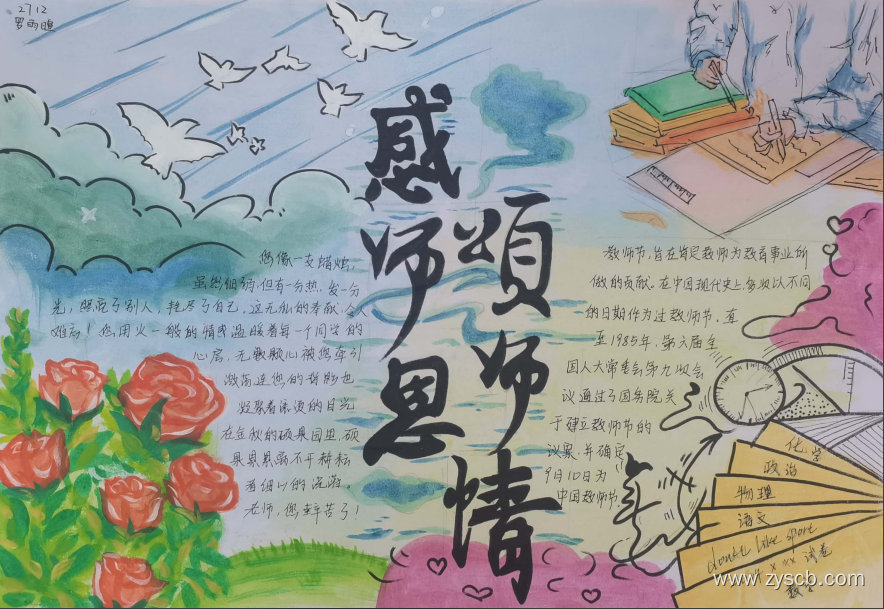 2712
罗雨瞧
感师恩
颂师情
您像一支蜡烛,
虽然细弱,但有一分热,发一分
光,照亮了别人,耗尽了自己,这无私的奉献,令人
难忘!您用火一般的情感温暖着每一个同学的
心房,无数颗心被您牵引
激荡,连您的背影也
凝聚着滚烫的目光
在金秋的硕果园里,硕
果累累离不开耕耘
者细心的浇灌,
老师,您辛苦了!
教师节,旨在肯定教师为教育事业所
做的贡献。在中国现代史上,多次以不同
的日期作为过教师节,直
至1985年,第六届全
国人大常委会第九次会
议通过了国务院关
于建立教师节的
议案,并确定
9月10日为
中国教师节
化学
政治
物理
语文
like sport
xx 试卷
数学
www.zyscb.com